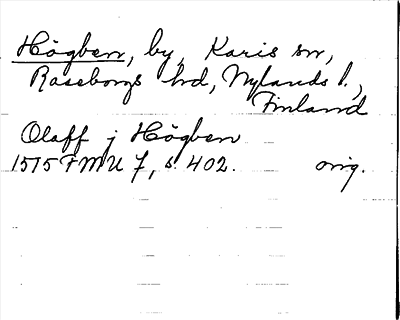 Högben, by, Karis sn,
Raseborgs hd, Nylands l.,
Finland
Olaff j Högben
1575 FMU 7, s. 402. orig.